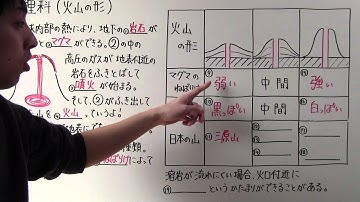 理科(火山の形)
内部の熱により、地下の岩石が
マグマができる。②の中の
高圧のガスが地表付近の
岩石をふきとばして
噴火が始まる。
そして、②がふき出して
火山っていうよ。
ねばりけによって
火山の形
マグマのねばりけ
弱い 中間 強い
黒っぽい 中間 白っぽい
日本の山 三原山
溶岩が流れにくい場合、火口付近に
というかたまりができることがある。